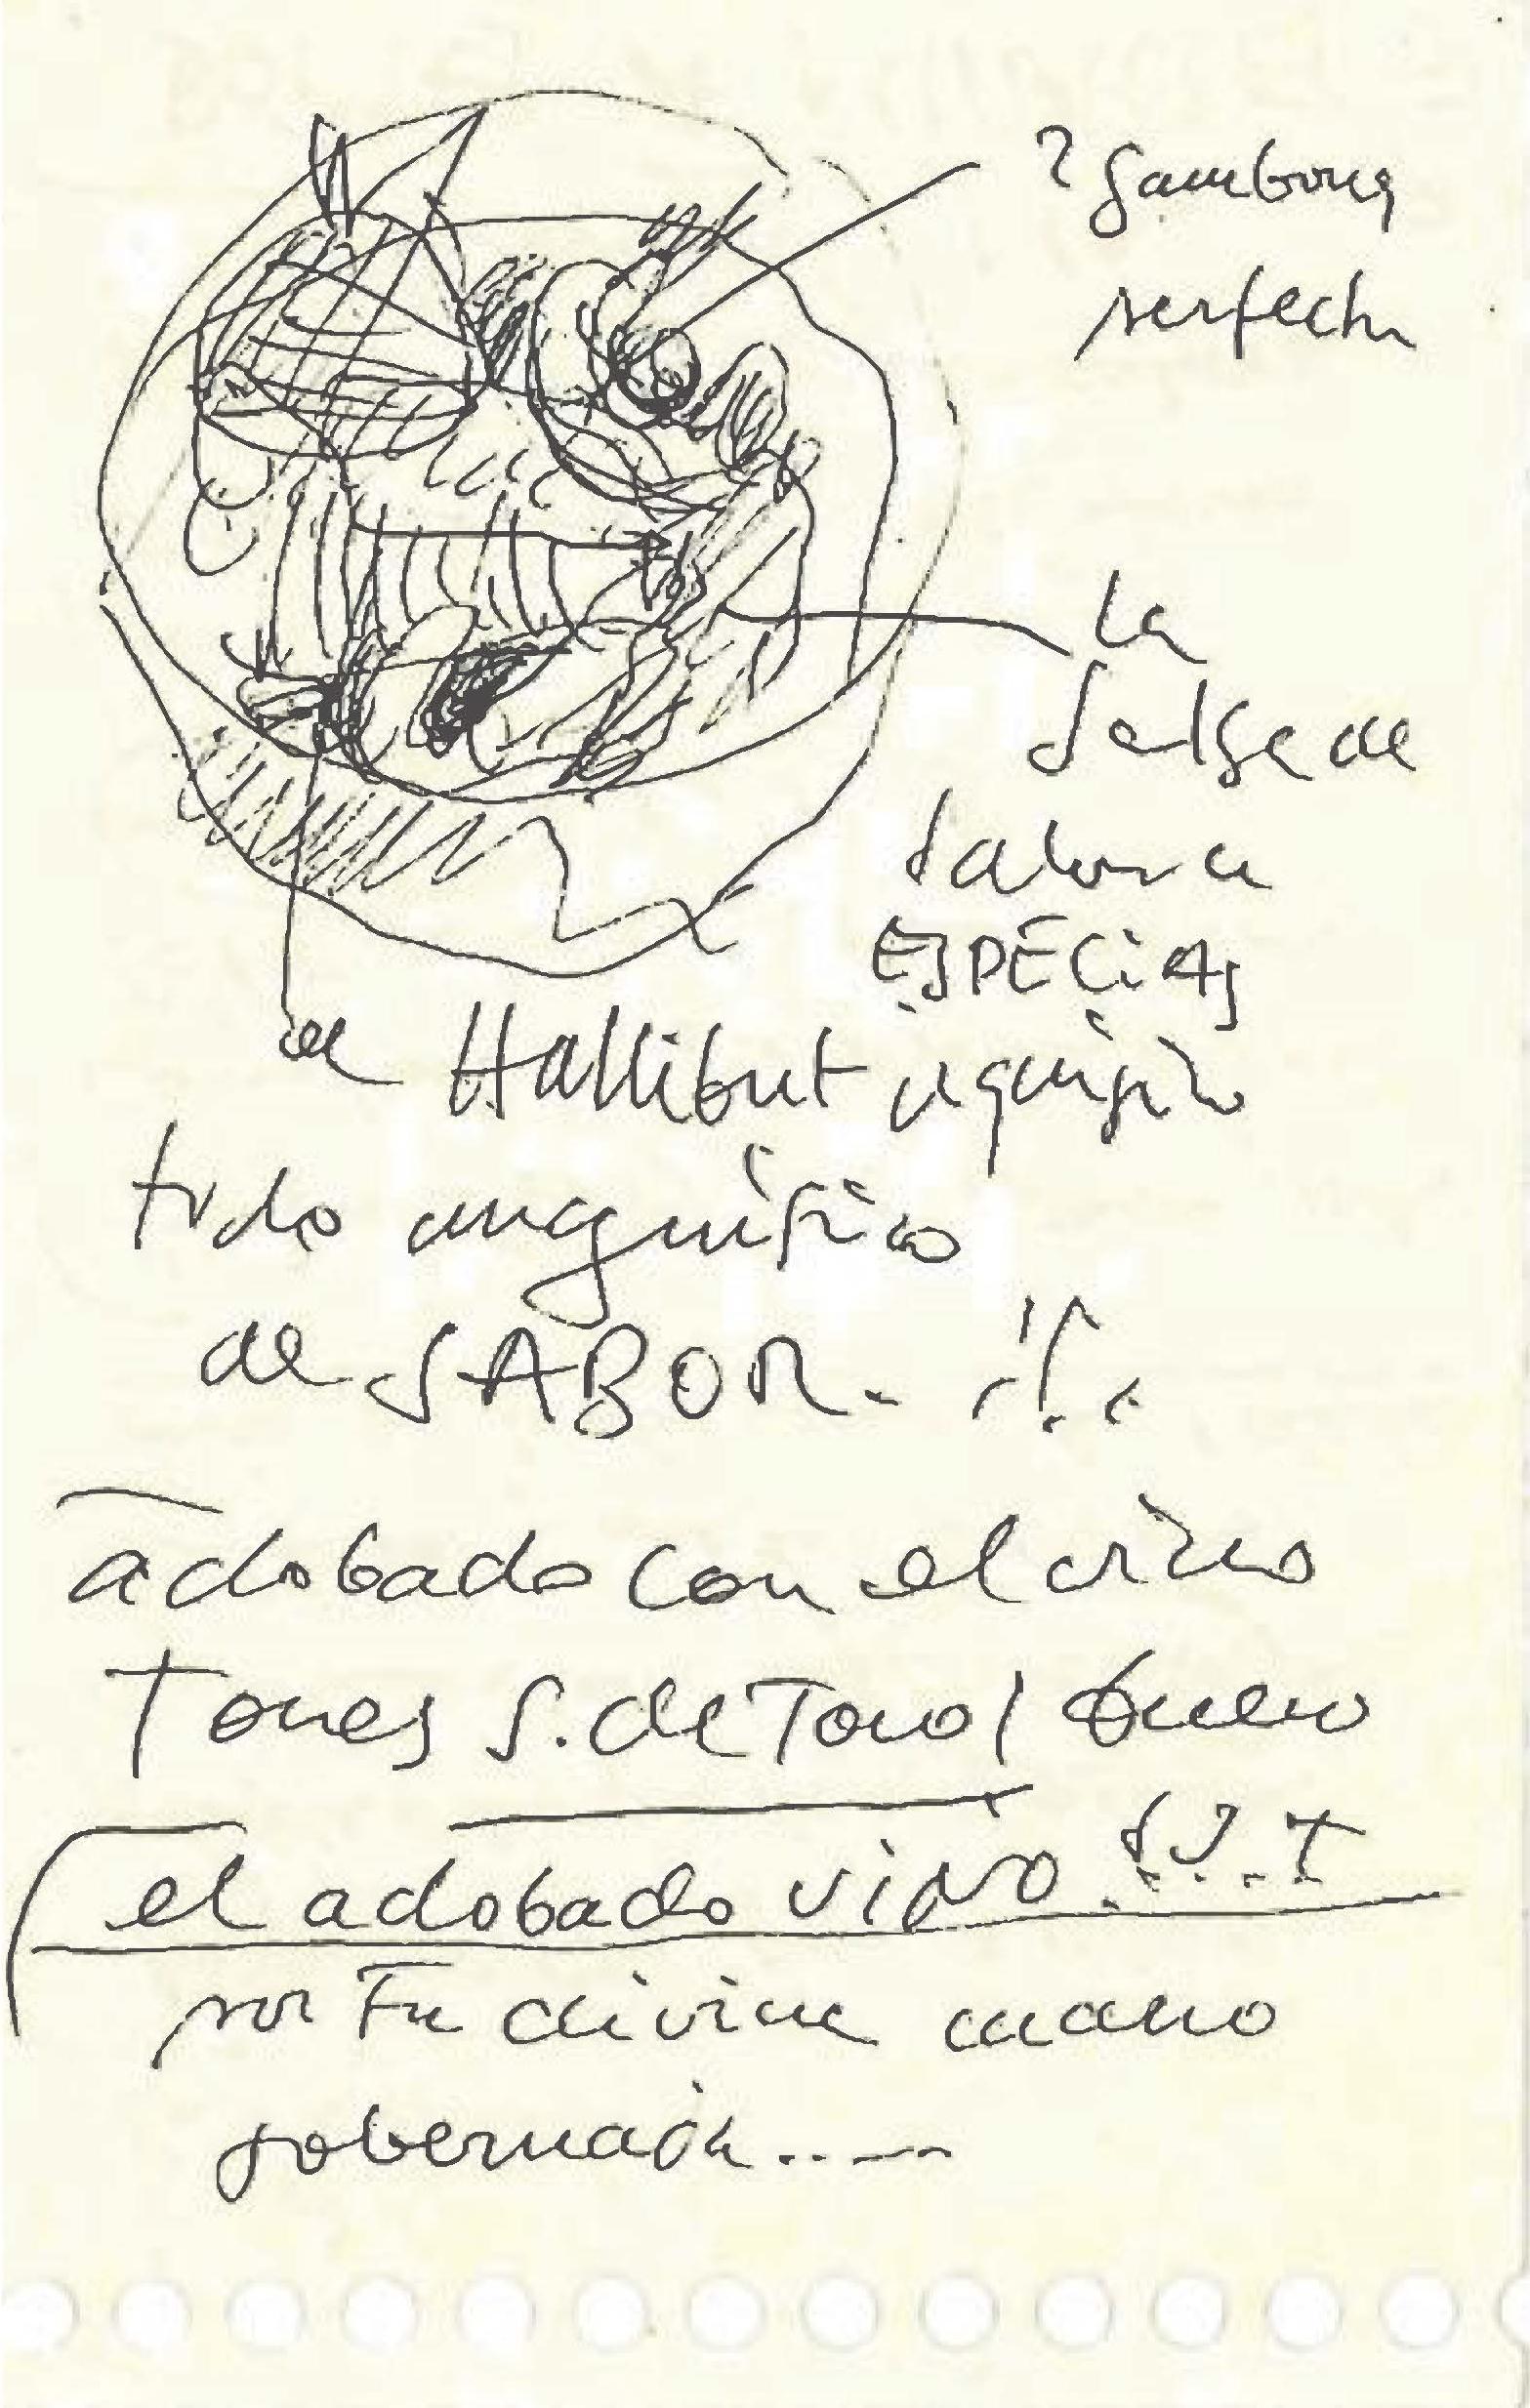 2 gambones
perfecto
la
salsa de
sabor a
ESPECIAS
el Hallibut exquisito
todo magnífico
de SABOR
adobado con el vino
Torres S. de Toro / Duero
el adobado vino
por Fu divina mano
gobernada.....